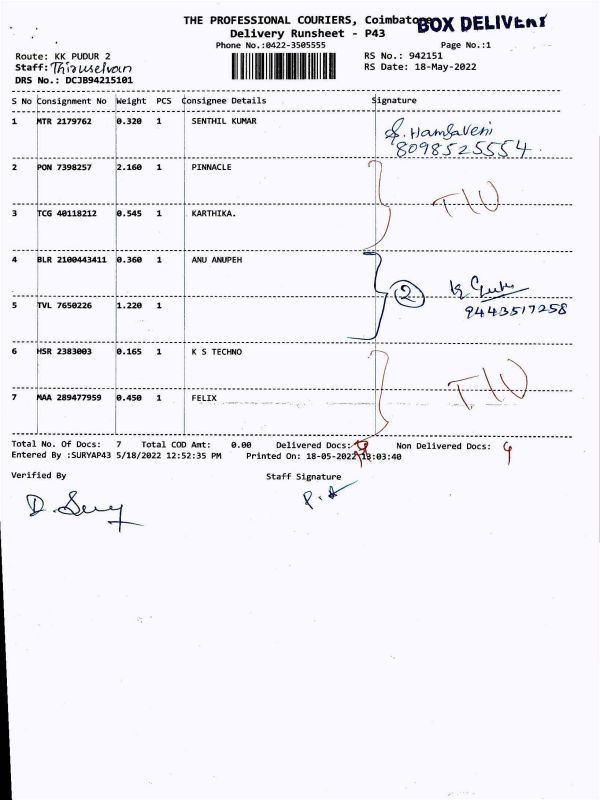 THE PROFESSIONAL COURIERS, Coimbatore
BOX DELIVERY
Delivery Runsheet - P43
Phone No.:0422-3505555
Page No.:1
Route: KK PUDUR 2
RS No.: 942151
Staff: Thiruselvan
RS Date: 18-May-2022
DRS No.: DCJB94215101
S No Consignment No Weight PCS Consignee Details Signature
1 MTR 2179762 0.320 1 SENTHIL KUMAR
S. Hamsaveni
8098525554
2 PON 7398257 2.160 1 PINNACLE
3 TCG 40118212 0.545 1 KARTHIKA.
4 BLR 2100443411 0.360 1 ANU ANUPEH
2
9443517258
5 TVL 7650226 1.220 1
6 HSR 2383003 0.165 1 K S TECHNO
7 MAA 289477959 0.450 1 FELIX
Total No. Of Docs: 7 Total COD Amt: 0.00 Delivered Docs: Non Delivered Docs:
Entered By :SURYAP43 5/18/2022 12:52:35 PM Printed On: 18-05-2022 13:03:40
Verified By Staff Signature